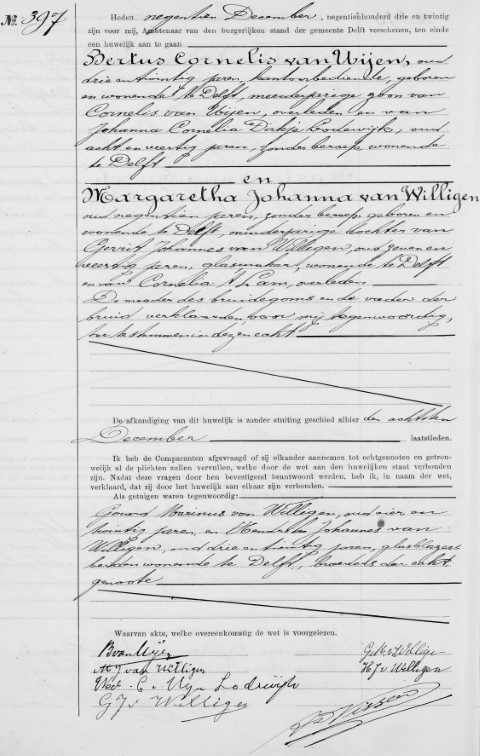 № 397
Heden negentien December, negentienhonderd drie en twintig
zijn voor mij, Ambtenaar van den burgerlijken stand der gemeente Delft verschenen, ten einde
een huwelijk aan te gaan
Bertus Cornelis van Uijen, oud
drie en twintig jaren, kantoorbediende, geboren
en wonende te Delft, meerderjarige zoon van
Cornelis van Uijen, overleden en van
Johanna Cornelia Dirkje Lodewijk, oud
acht en veertig jaren, zonder beroep, wonende
te Delft
en
Margaretha Johanna van Willigen
oud negentien jaren, zonder beroep, geboren en
wonende te Delft, minderjarige dochter van
Gerrit Johannes van Willigen, oud zeven en
veertig jaren, glasmaker, wonende te Delft
en van Cornelia Lam, overleden
De moeder des bruidegoms en de vader der
bruid verklaarden voor mij tegenwoordig,
toe te stemmen in dezen echt
De afkondiging van dit huwelijk is zonder stuiting geschied alhier den achtsten
December laatstleden.
Ik heb de Comparanten afgevraagd of zij elkander aannemen tot echtgenooten en getrouwelijk
al de plichten zullen vervullen, welke door de wet aan den huwelijken staat verbonden
zijn. Nadat deze vragen door hen bevestigend beantwoord werden, heb ik, in naam der wet,
verklaard, dat zij door het huwelijk aan elkaar zijn verbonden.
Als getuigen waren tegenwoordig:
Marinus van Willigen, oud vier en
twintig jaren, en Hendrik Johannes van
Willigen, oud drie en twintig jaren, glasblazers
beiden wonende te Delft, broeders der echt-
genoote
Waarvan akte, welke overeenkomstig de wet is voorgelezen.
B van Uijen
M J van Willigen
Wed. C. v. Uijen Lodewijk
G J v Willigen
G. M. v. Willigen
H J v Willigen